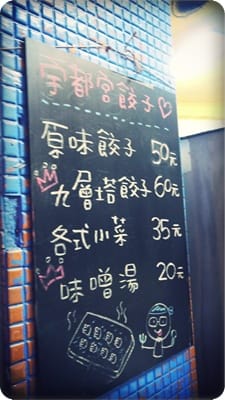 宇都宮餃子
原味餃子 50元
九層塔餃子 60元
各式小菜 35元
味噌湯 20元